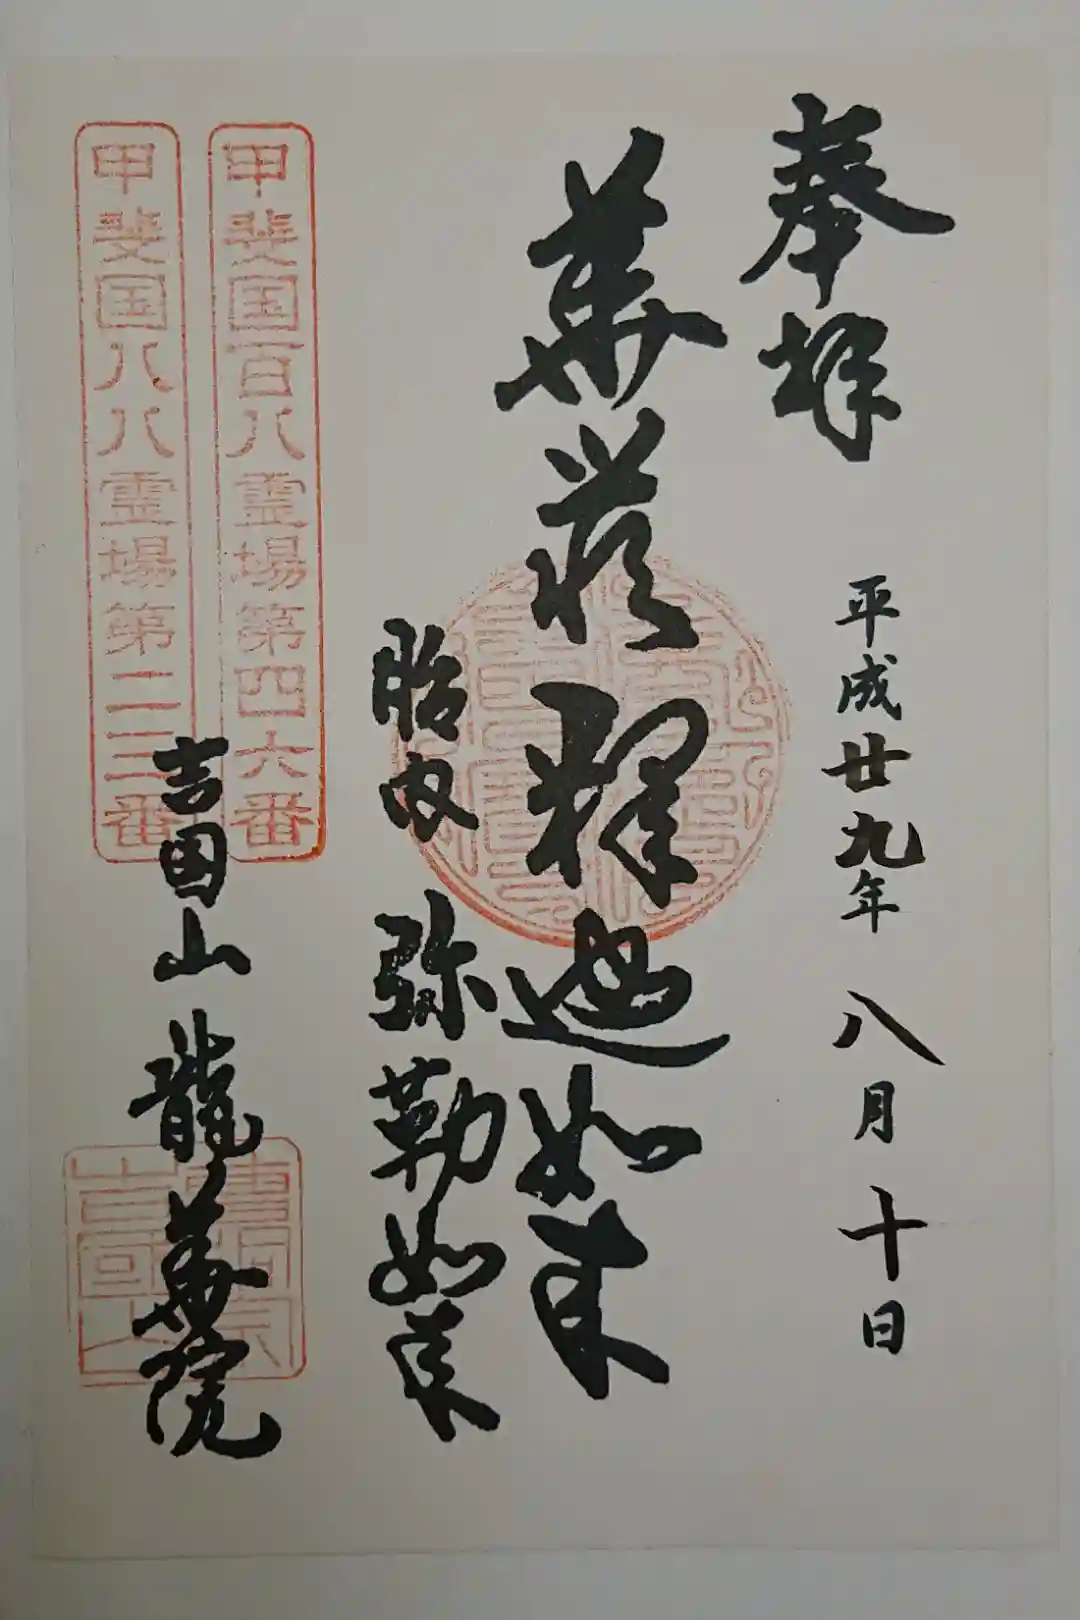 奉拝
平成廿九年八月十日
華蔵釋迦如来
胎内弥勒如来
甲斐国百八霊場第四六番
甲斐国八八霊場第二三番
吉国山龍華院
曹洞宗
吉國山